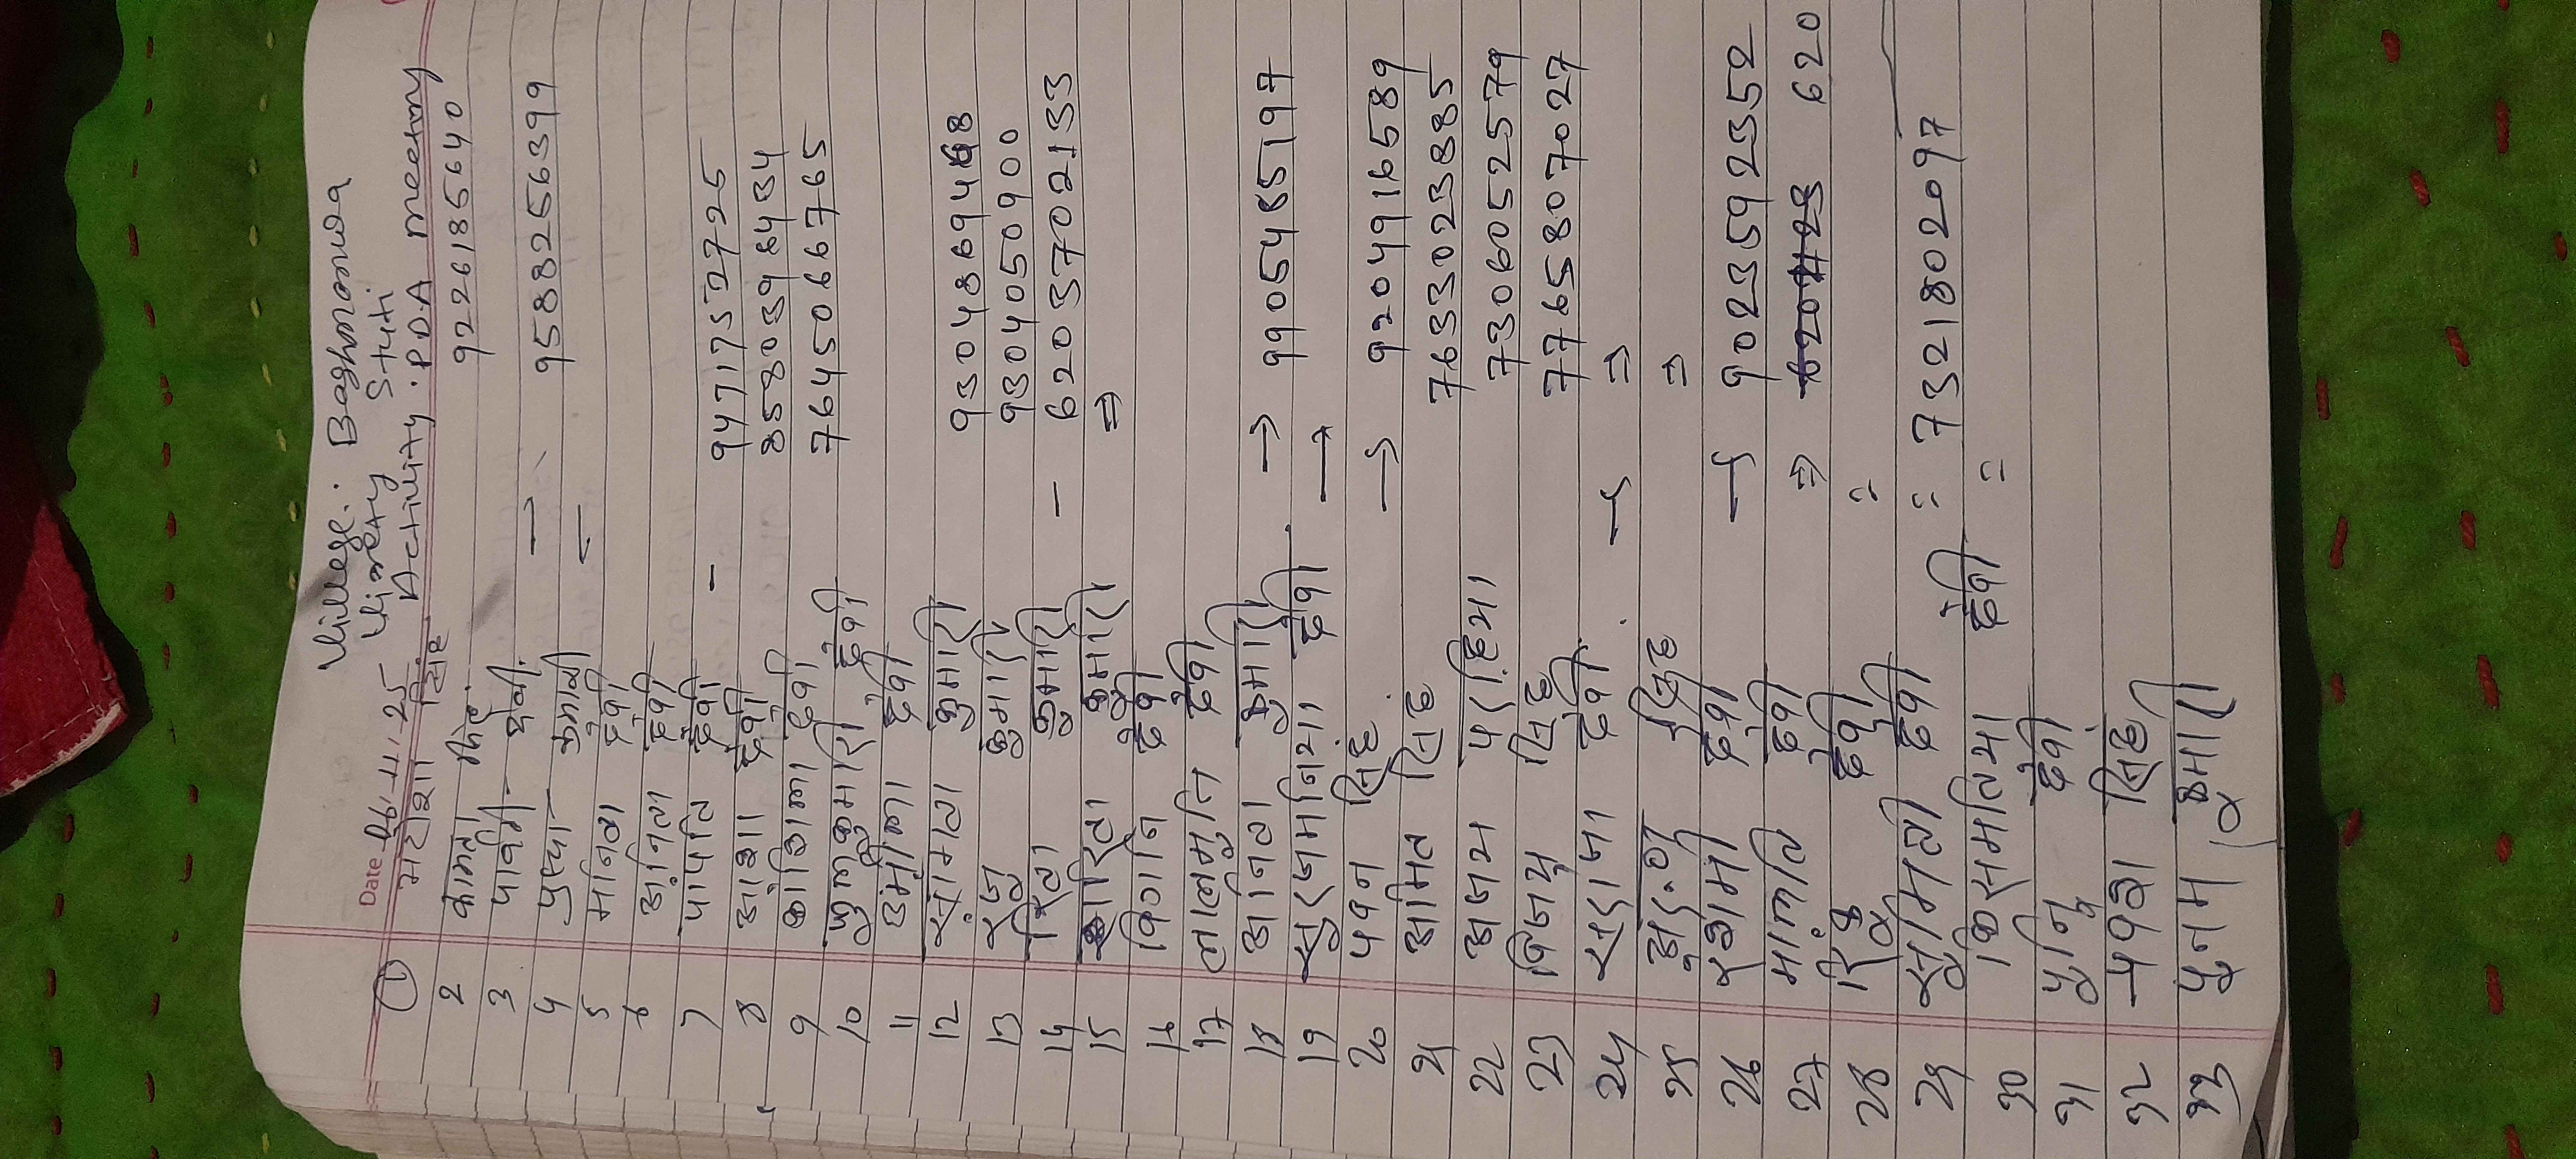 Village: Baghmanwa
Vinety Stuti
Date 06.11.25 Activity: P.D.A meeting
① सिंह
2 कान्ता सिंह 9226185640
3 पार्वती देवी →
4 पुष्पा कुमारी - 9588256399
5 मनिता देवी
6 सुनिता देवी
7 पार्पति देवी - 9471752725
8 आशा देवी 8580398434
9 कौशिल्या देवी 7645066765
10 फुलकुमारी देवी
11 उर्मीला देवी
12 संगिता कुमारी 9304869468
13 रंजु कुमारि 9304050900
14 रिता कुमारी - 6203702133
15 सरिता कुमारी ⇒
16 देवी
17 लालमुनि देवी
18 अनिता कुमारी → 9905485197
19 सुरजमनिया देवी →
20 पवन सिंह → 9204916589
21 अमित सिंह 7633023885
22 अजय 7306052579
23 विजय सिंह 7765807027
24 सरोज देवी → ⇒
25 सिंह ⇒
26 देवी → 9023592352
27 मालति देवी ⇒ 620
28 रिंकु देवी =
29 सुमित्रा देवी = 7321802097
30 किसमतिया देवी =
31 मुनि देवी
32 सिंह
33 पुनम कुमारी